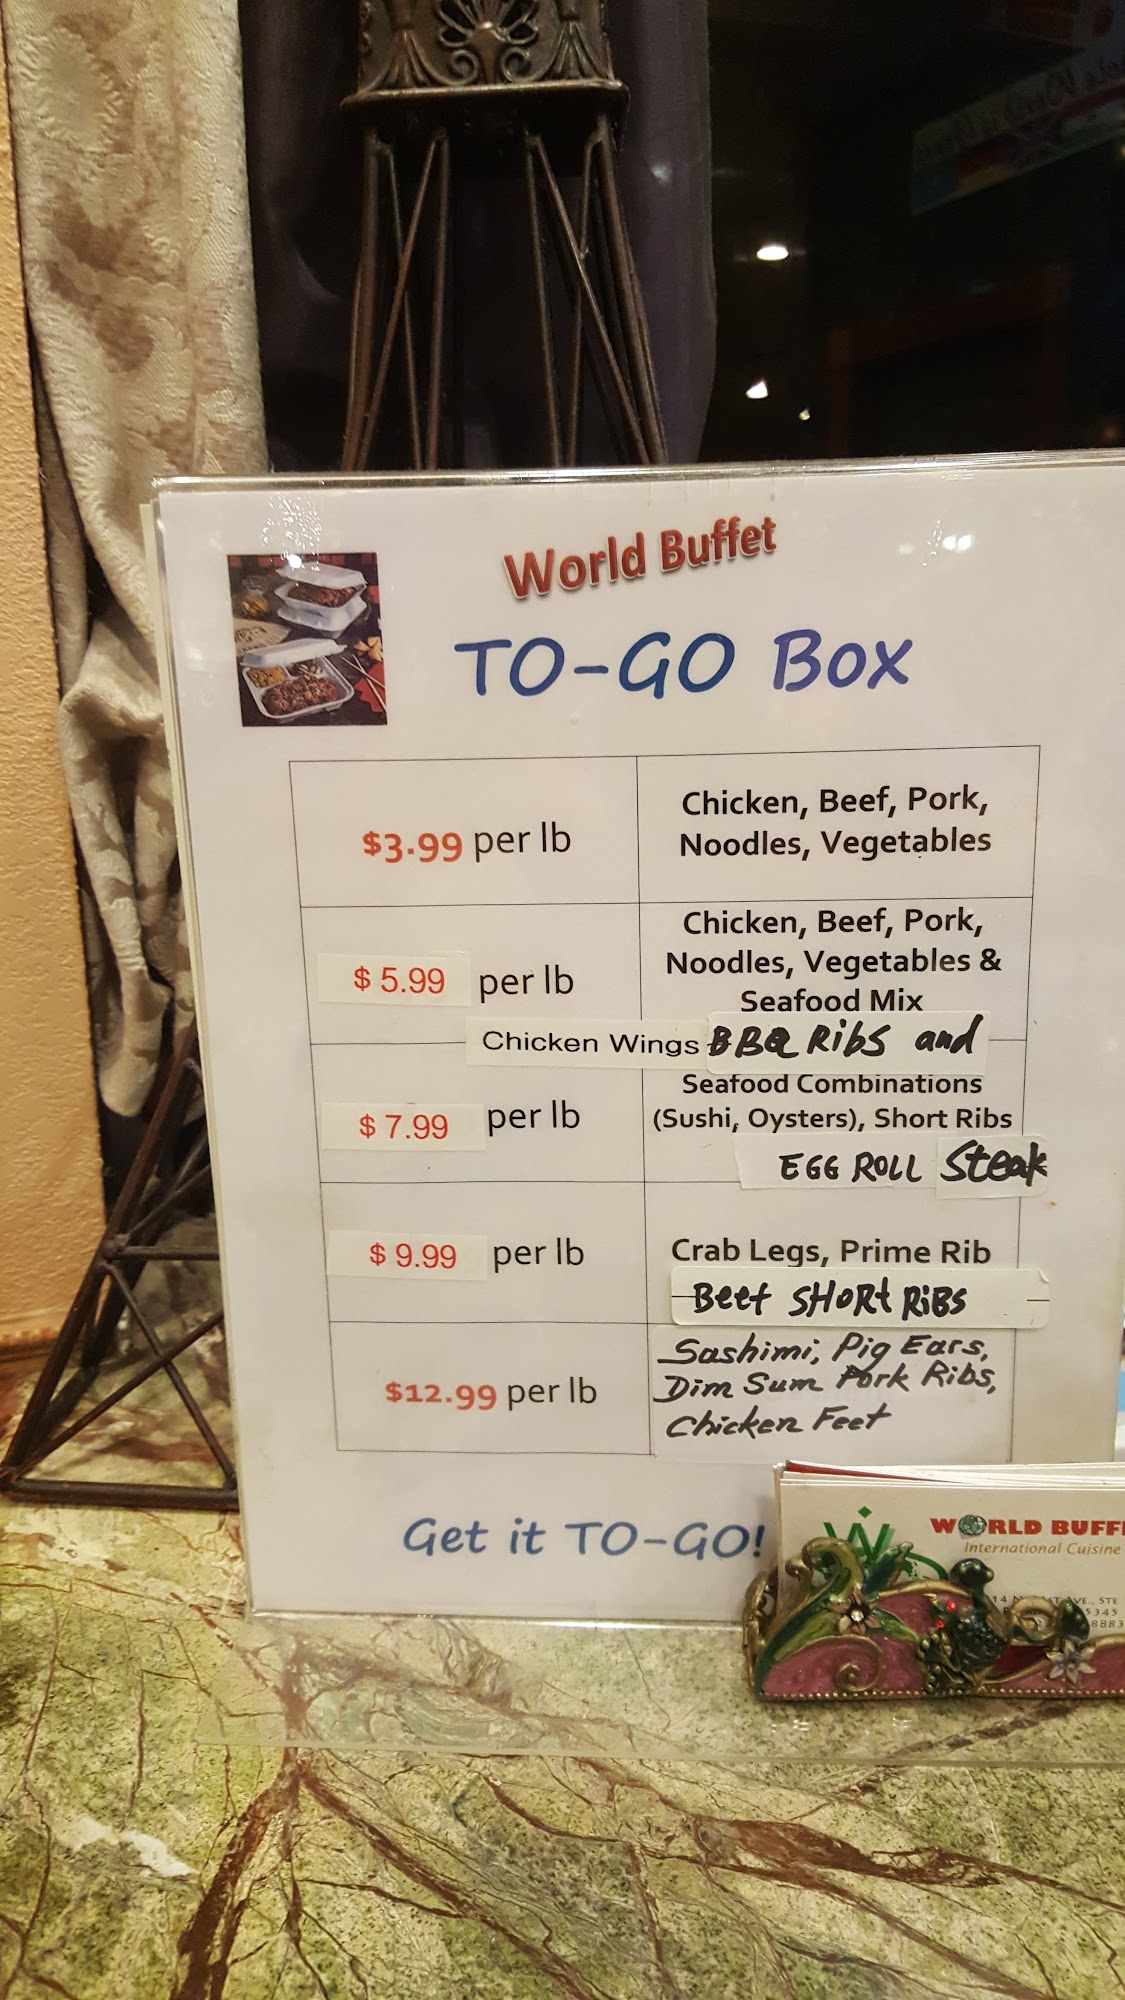 World Buffet
TO-GO Box
$3.99 per lb
Chicken, Beef, Pork,
Noodles, Vegetables
$ 5.99 per lb
Chicken, Beef, Pork,
Noodles, Vegetables &
Seafood Mix
Chicken Wings BBQ Ribs and
$ 7.99 per lb
Seafood Combinations
(Sushi, Oysters), Short Ribs
EGG ROLL Steak
$ 9.99 per lb
Crab Legs, Prime Rib
Beef SHORt RiBS
$12.99 per lb
Sashimi, Pig Ears,
Dim Sum Pork Ribs,
Chicken Feet
Get it TO-GO!
WORLD BUFF
International Cuisine